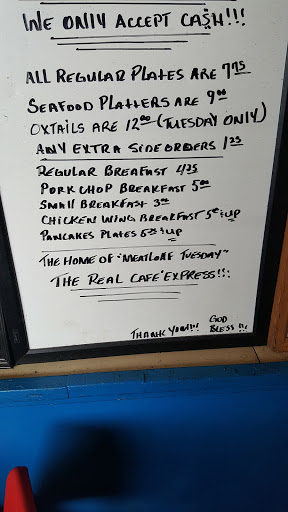 WE ONLY ACCEPT CA$H!!!
ALL REGULAR PLATES ARE 7.75
SEAFOOD PLATTERS ARE 9.00
OXTAILS ARE 12.00 (TUESDAY ONLY)
ANY EXTRA SIDE ORDERS 1.25
REGULAR BREAFAST 4.25
PORK CHOP BREAKFAST 5.00
SMALL BREAKFAST 3.00
CHICKEN WING BREAKFAST 5.00 & UP
PANCAKES PLATES & UP
THE HOME OF "MEATLOAF TUESDAY"
THE REAL CAFE' EXPRESS!!!
THANK YOU!!!
GOD
BLESS!!!